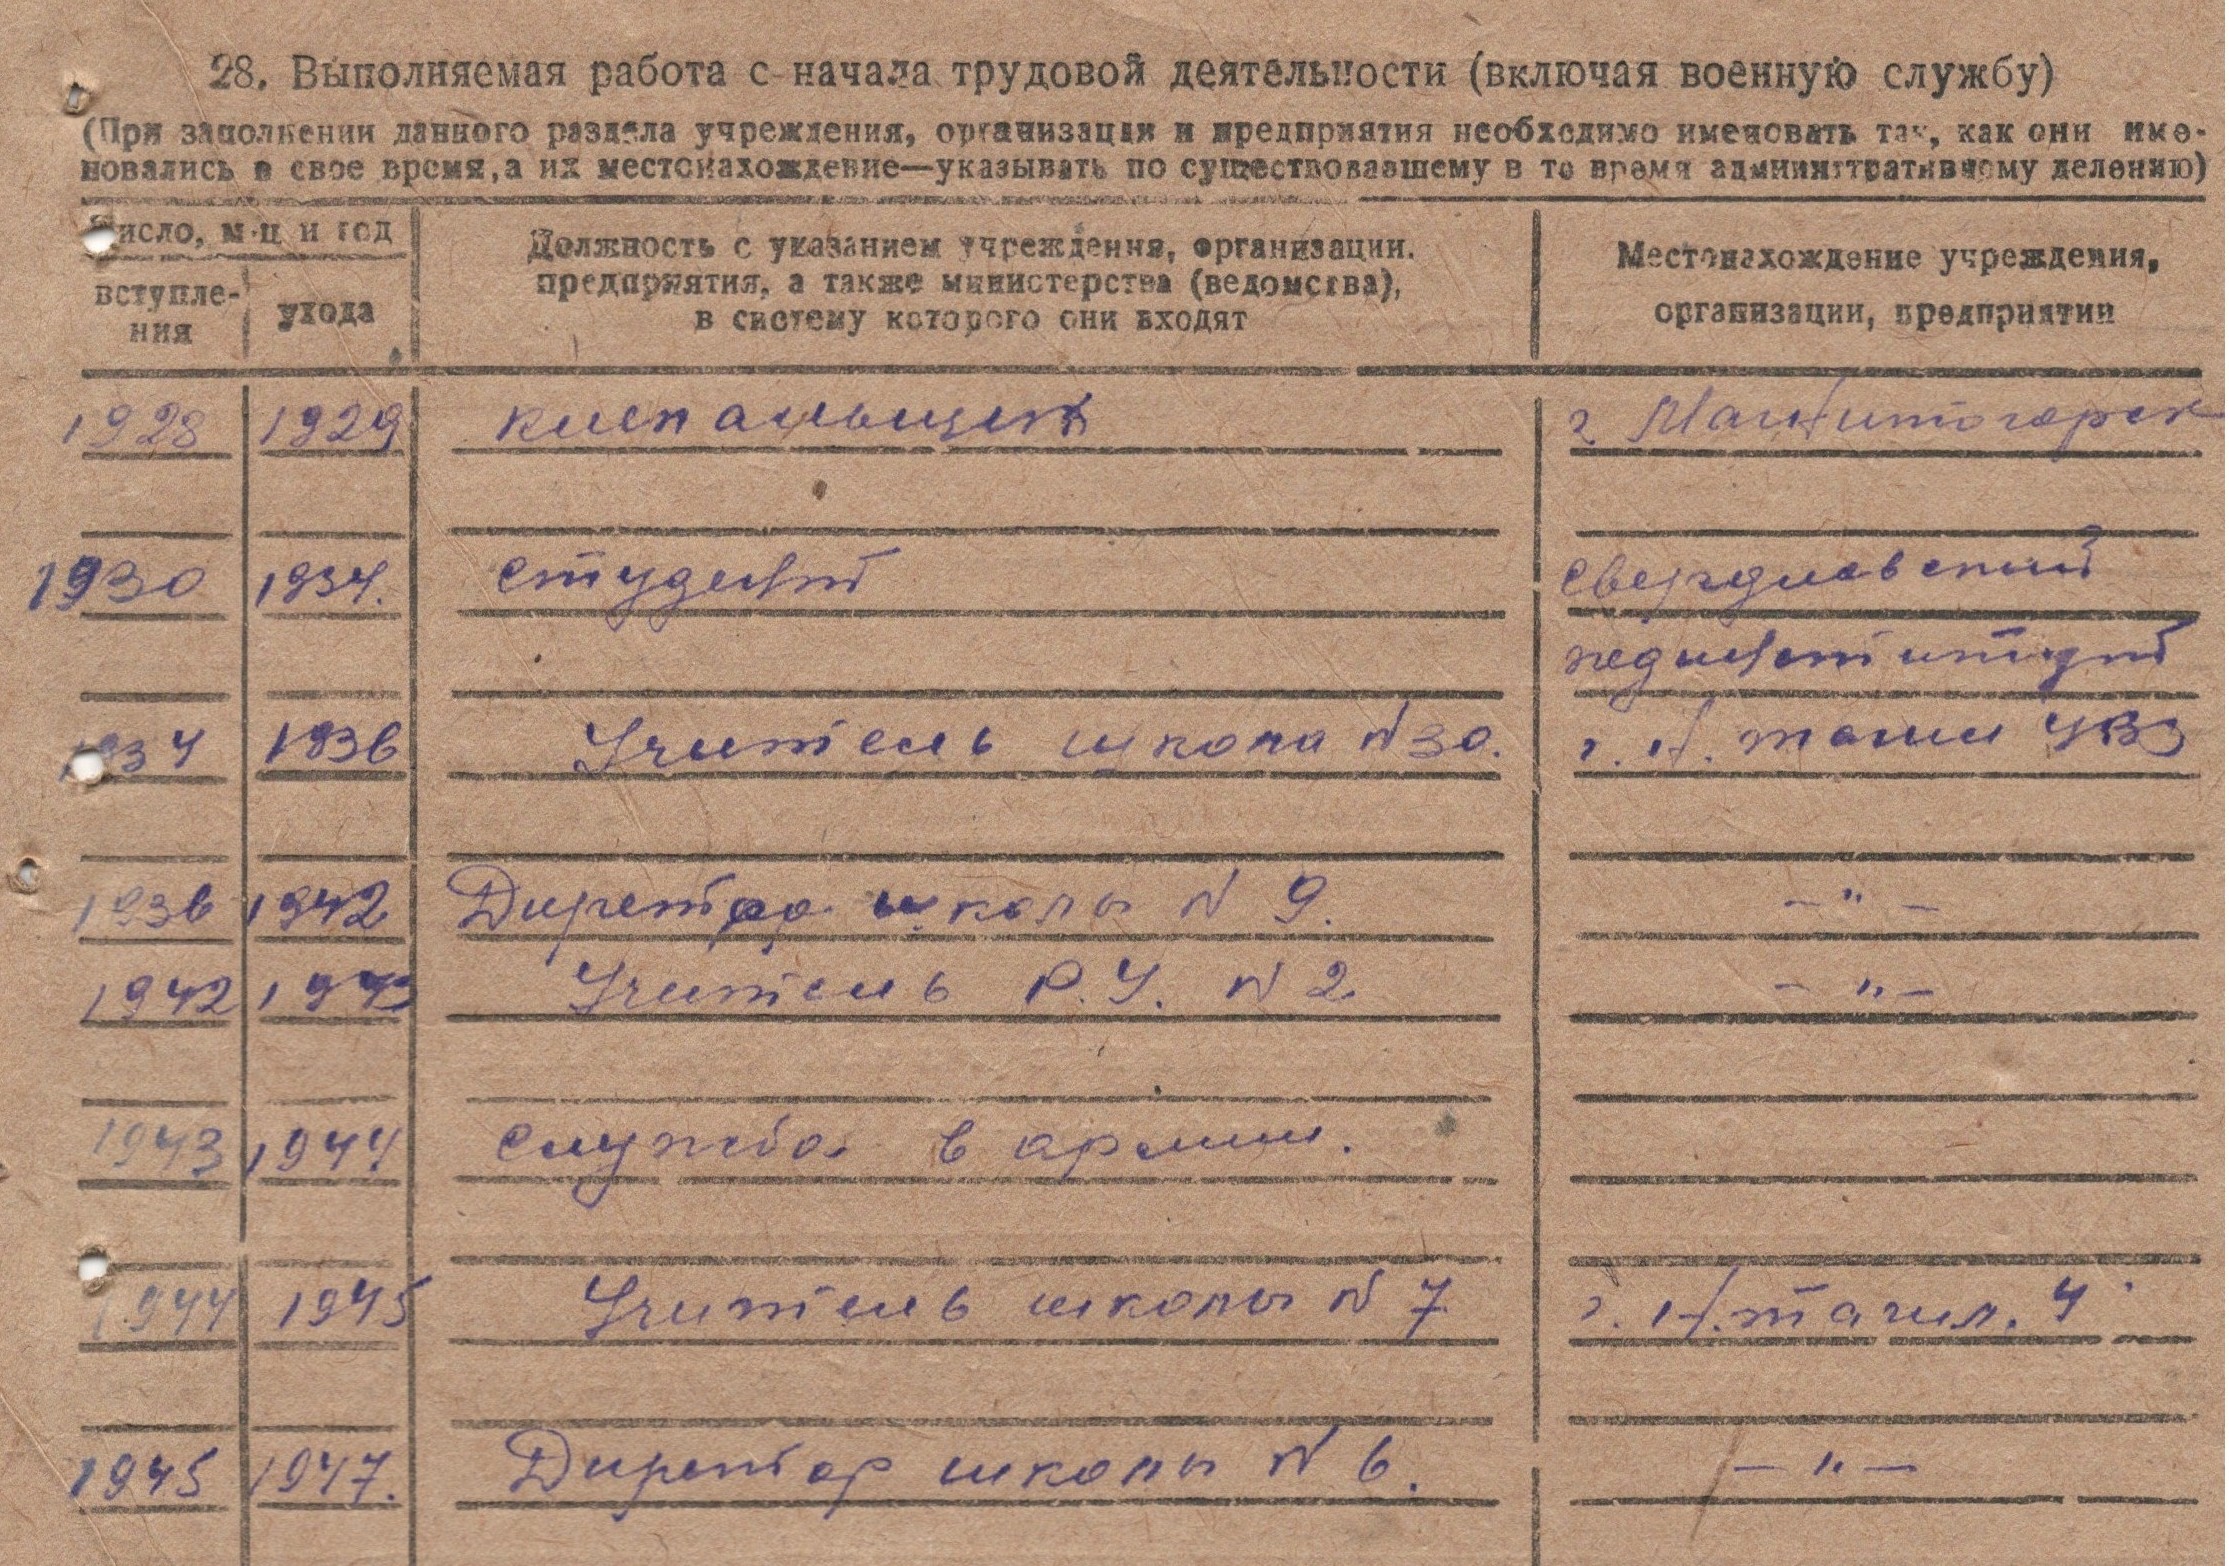 28. Выполняемая работа с начала трудовой деятельности (включая военную службу)
(При заполнении данного раздела учреждения, организации и предприятия необходимо именовать так, как они име-
новались в свое время, а их местонахождение—указывать по существовавшему в то время административному делению)
Число, м-ц и год
вступле-
ния
ухода
Должность с указанием учреждения, организации.
предприятия, а также министерства (ведомства),
в систему которого они входят
Местонахождение учреждения,
организации, предприятии
1928 1929 г Магнитогорск
1930 1934. студент свердловский
пединститут
1934 1936 Учитель школа N 30. г. Н. тагил УВЗ
1936 1942 Директор школы N 9. — " —
1942 1943 Учитель Р.У. N 2 — " —
1943 1944 служба в армии.
1944 1945 Учитель школы N 7 г. Н. тагил.
1945 1947. Директор школы N 6. — " —